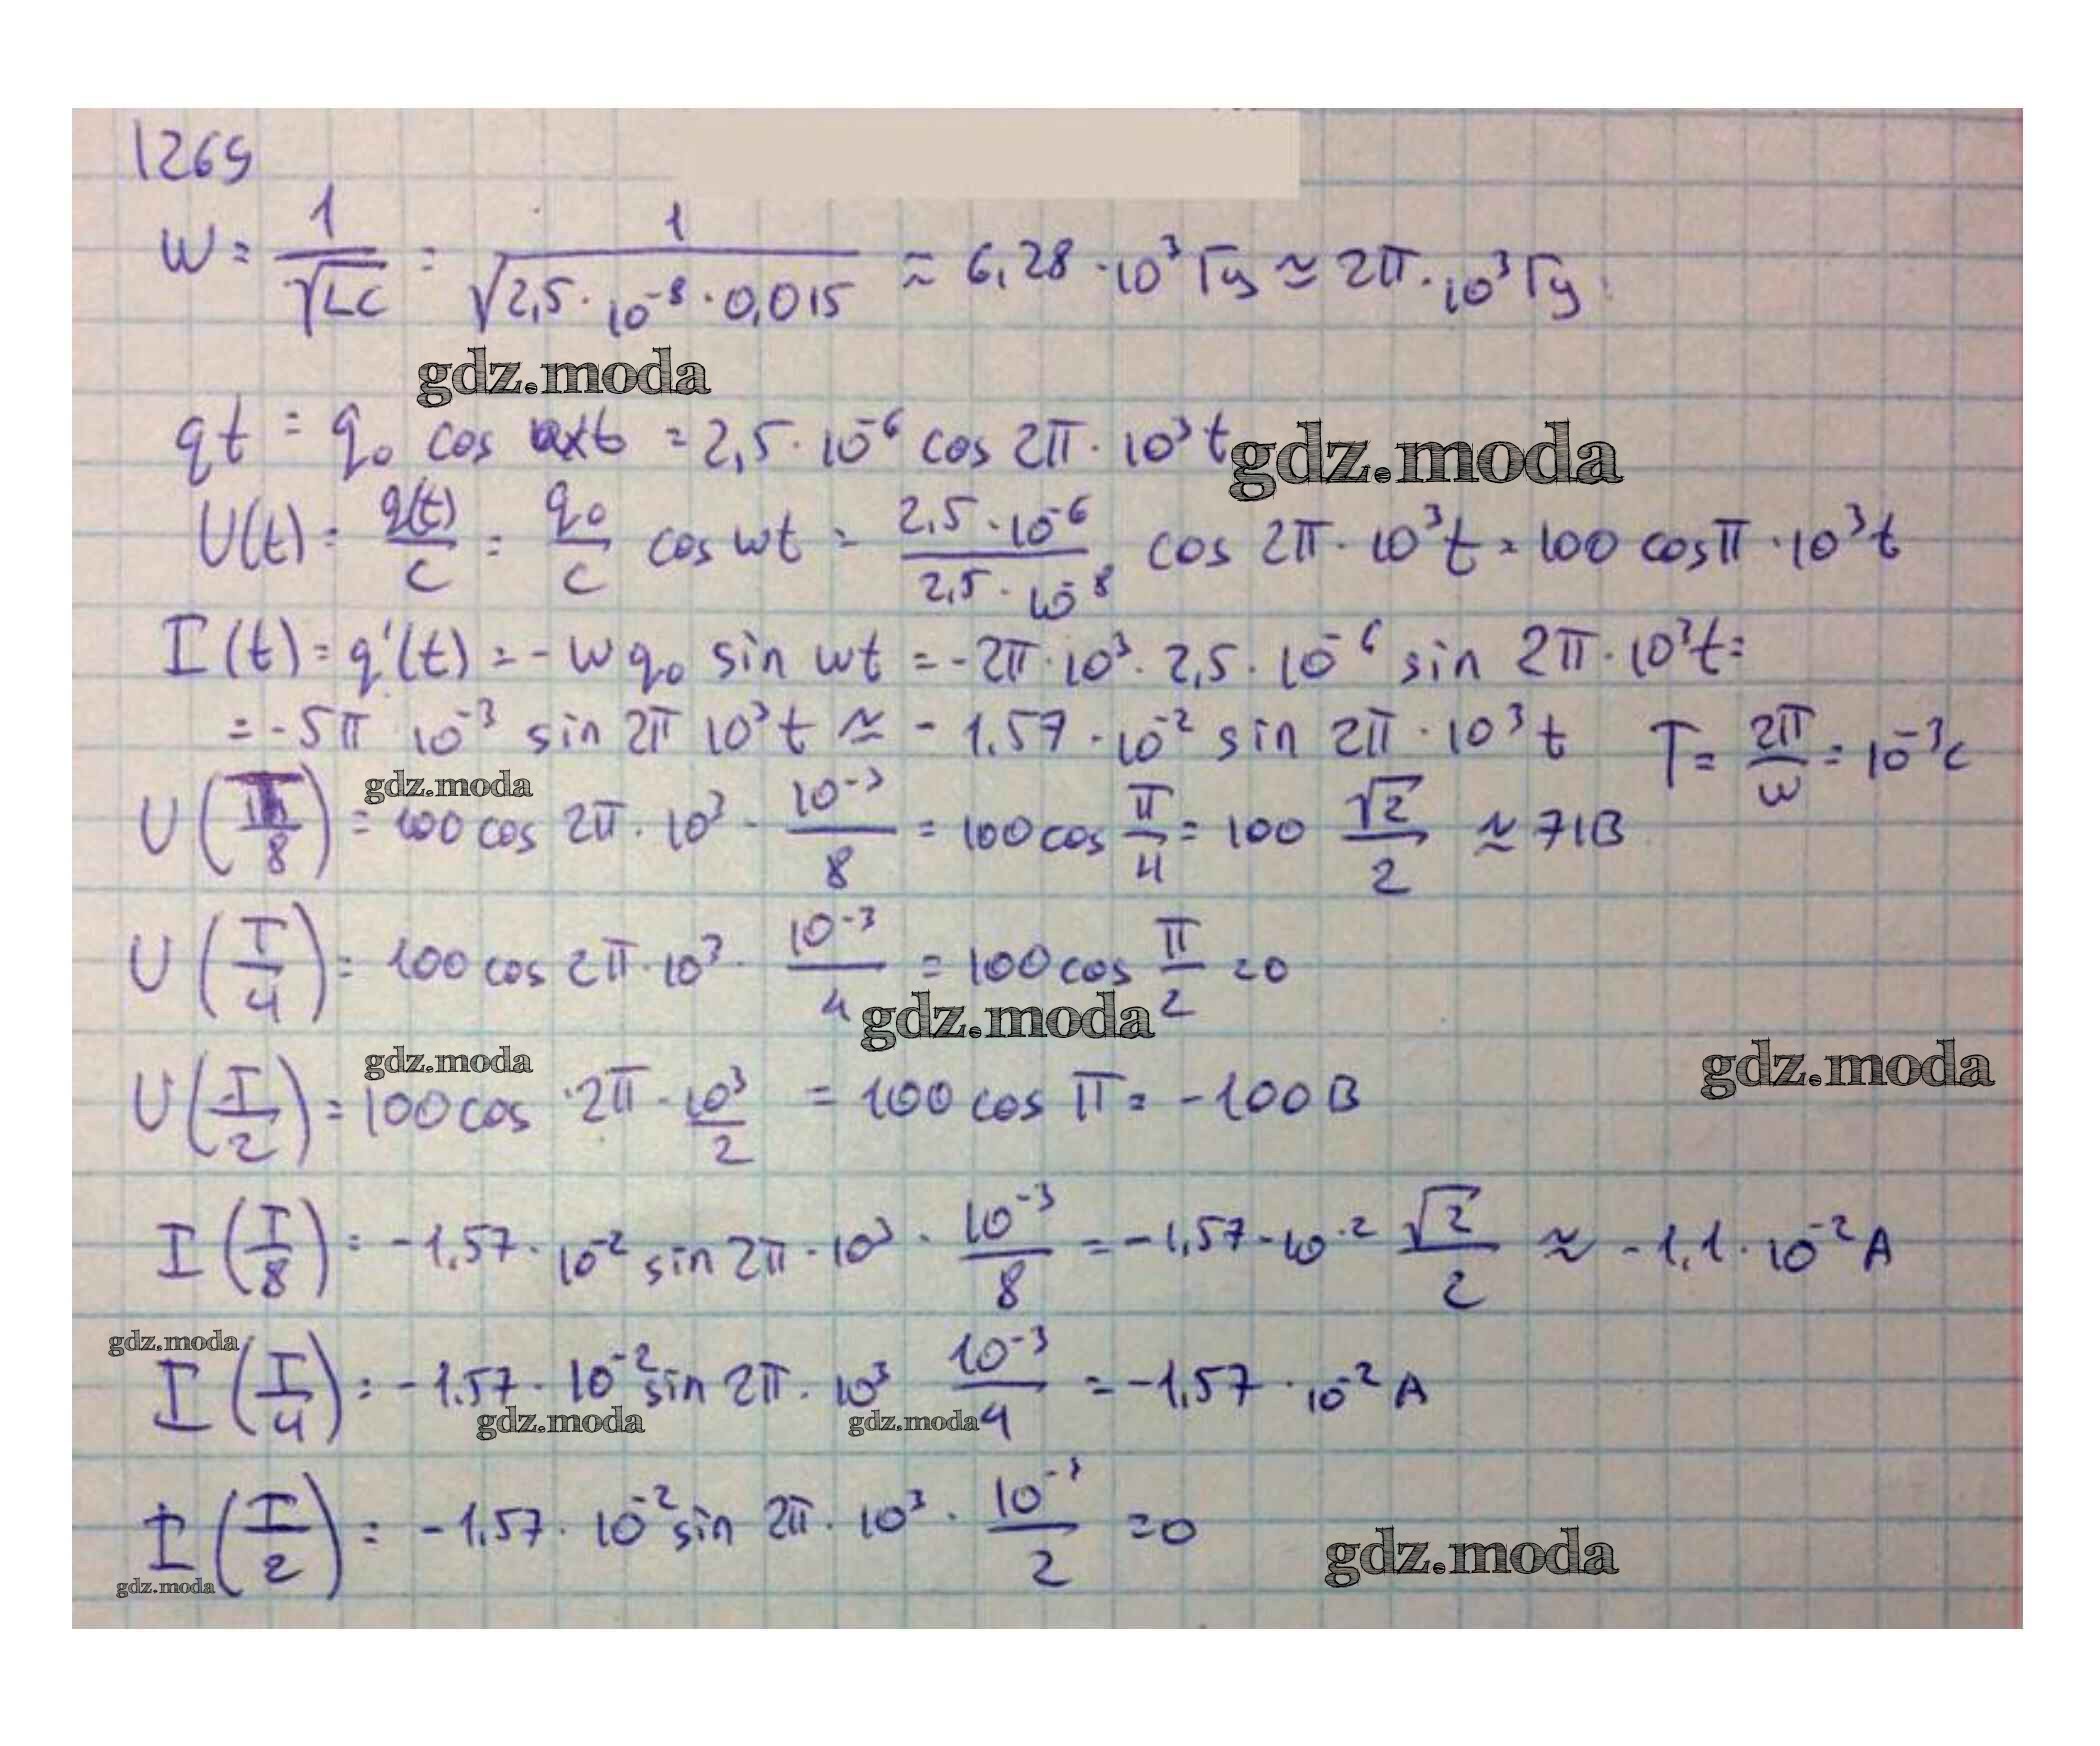 1265
W = 1/√LC = 1/√2,5·10⁻⁸·0,015 ≈ 6,28·10³ Гц ≈ 2π·10³ Гц
gdz.moda
qt = q₀ cos t = 2,5·10⁻⁶ cos 2π·10³t
gdz.moda
U(t) = q(t)/C = q₀/C cos wt = 2,5·10⁻⁶/2,5·10⁻⁸ cos 2π·10³t = 100 cos π·10³t
I(t) = q'(t) = -w q₀ sin wt = -2π·10³·2,5·10⁻⁶ sin 2π·10³t =
= -5π 10⁻³ sin 2π 10³t ≈ -1.57·10⁻² sin 2π·10³t T = 2π/w = 10⁻³c
gdz.moda
U(T/8) = 100 cos 2π·10³·10⁻³/8 = 100 cos π/4 = 100 √2/2 ≈ 71В
U(T/4) = 100 cos 2π·10³·10⁻³/4 = 100 cos π/2 = 0
gdz.moda
gdz.moda
gdz.moda
U(T/2) = 100 cos ·2π·10³/2 = 100 cos π = -100 В
I(T/8) = -1,57·10⁻² sin 2π·10³·10⁻³/8 = -1,57·10⁻² √2/2 ≈ -1,1·10⁻² А
gdz.moda
I(T/4) = -1.57·10⁻² sin 2π·10³ 10⁻³/4 = -1,57·10⁻² А
gdz.moda
gdz.moda
I(T/2) = -1.57·10⁻² sin 2π·10³·10⁻³/2 = 0
gdz.moda
gdz.moda